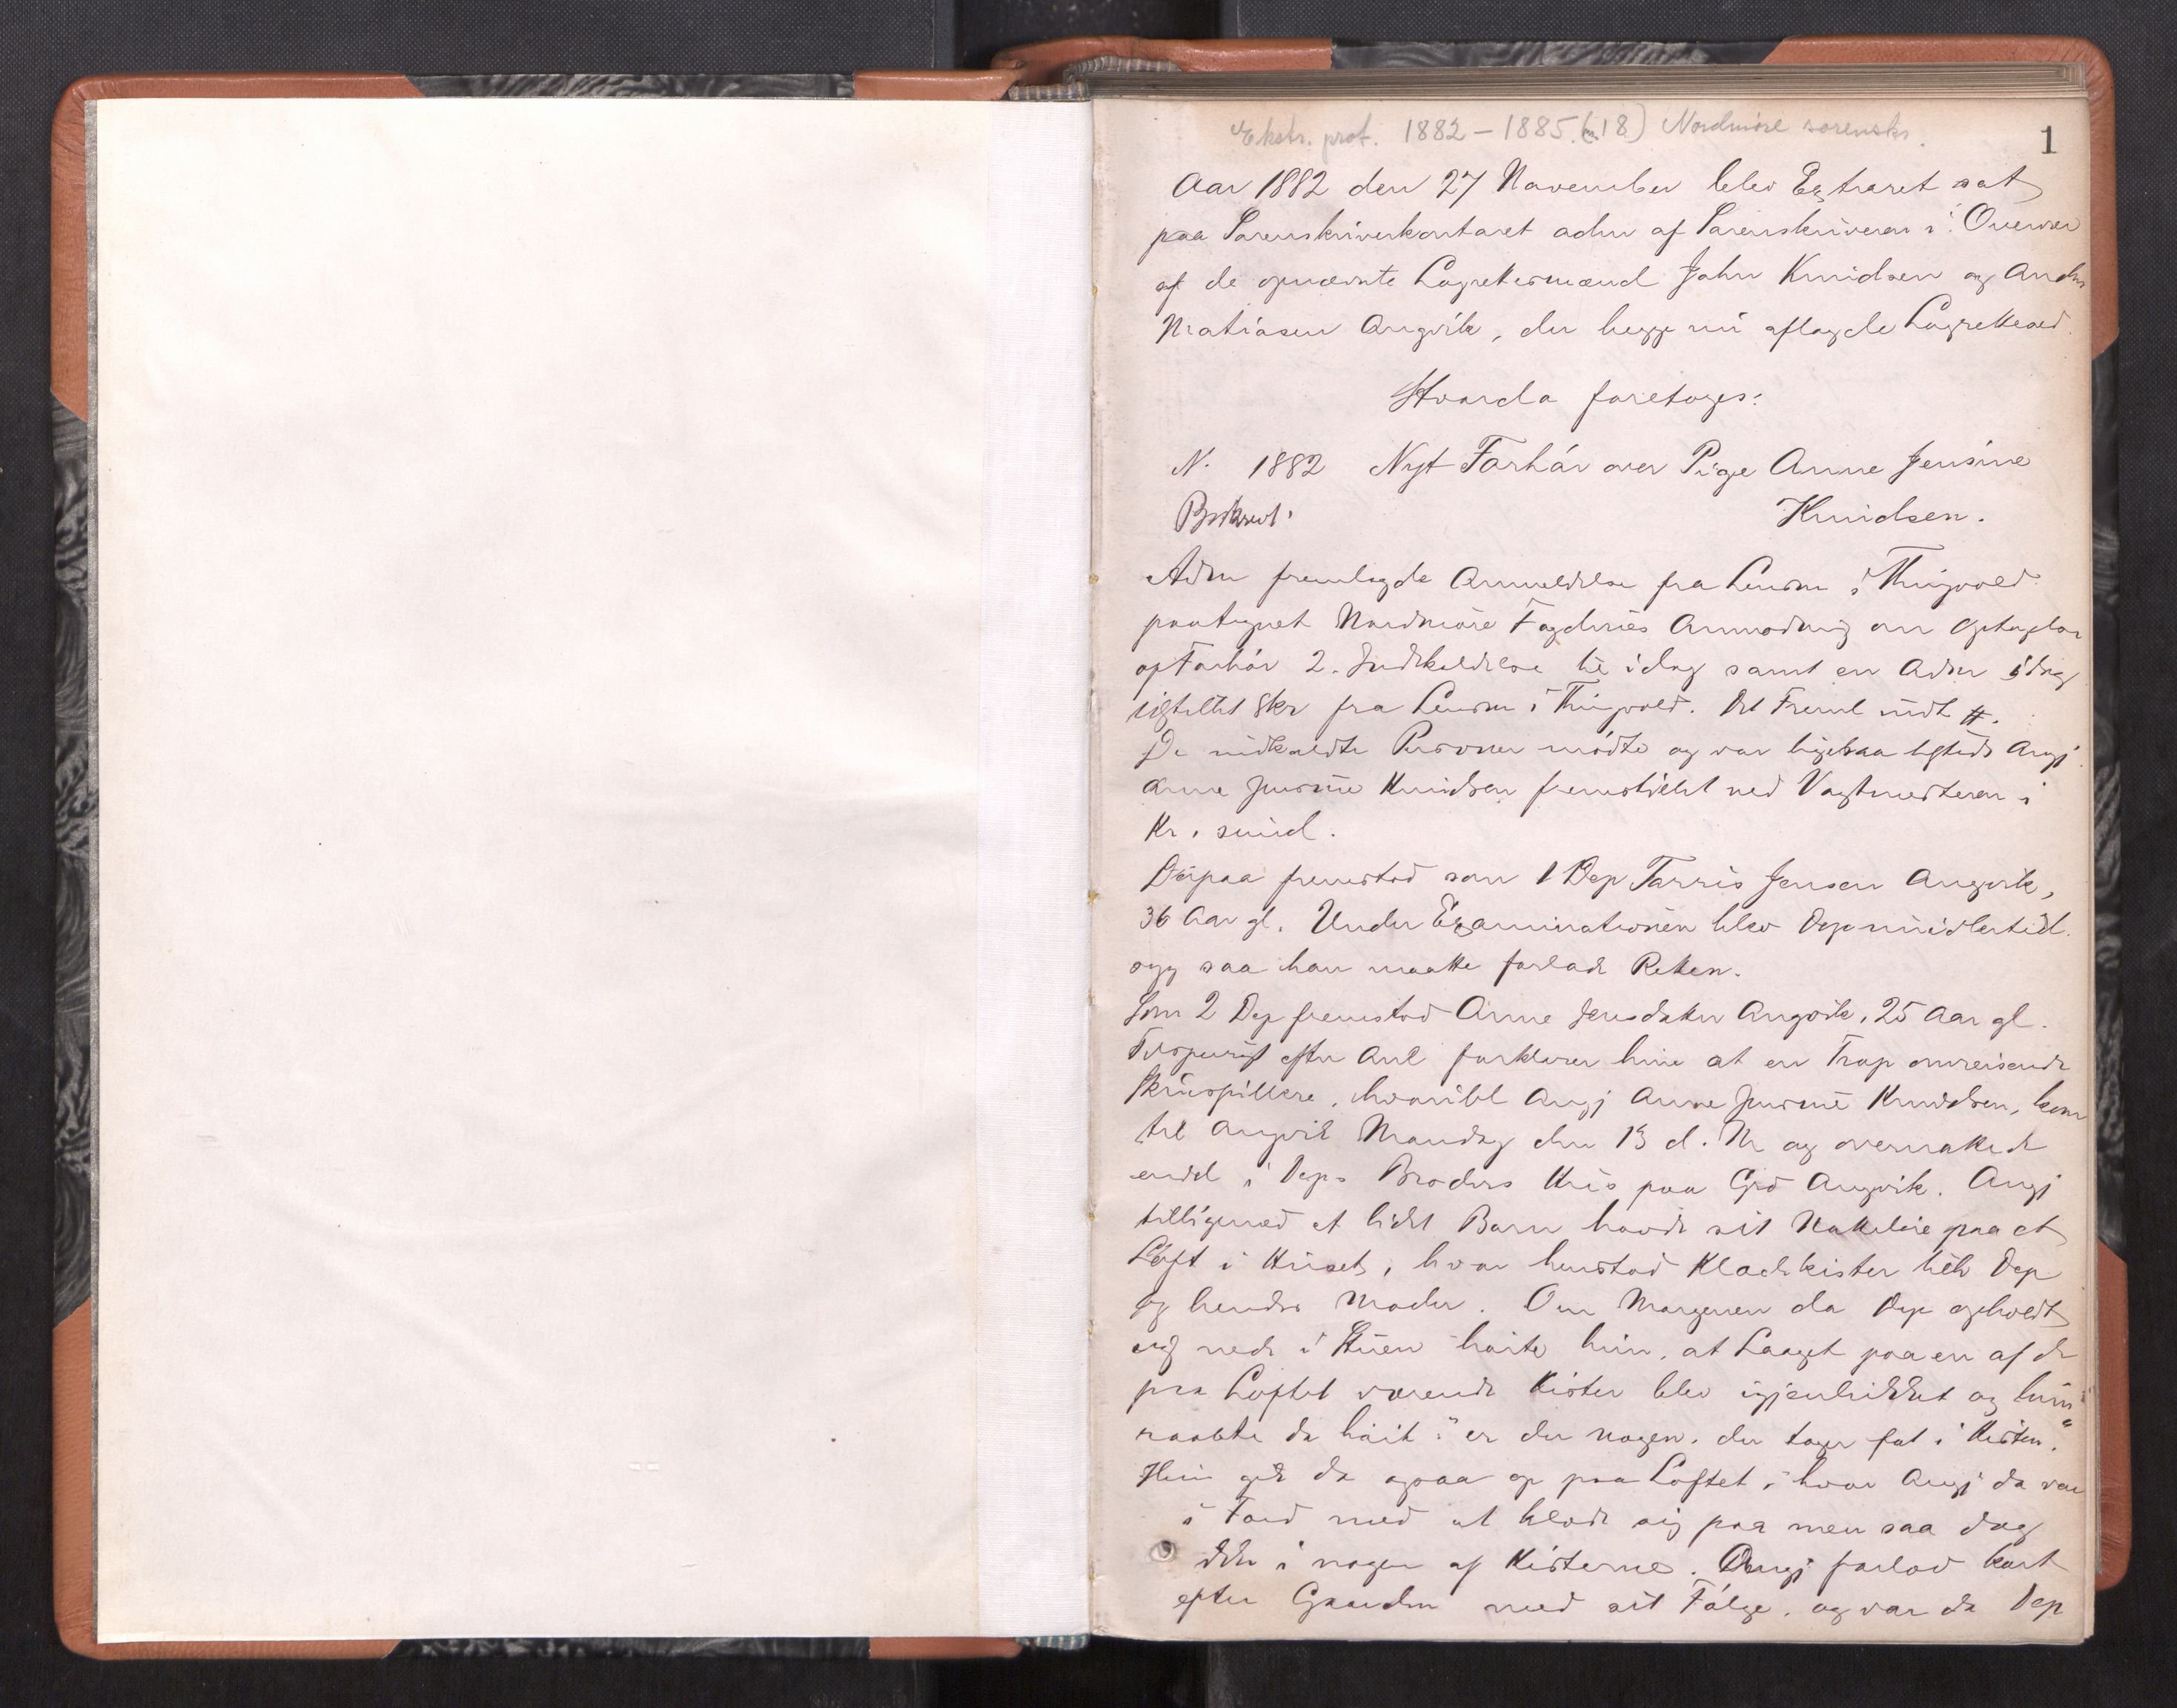 Ekstr. prot. 1882–1885. (18) Nordmøre sorenskr.
1
Aar 1882 den 27 November blev Extraret sat
paa Sorenskriverkontoret adm af Sorenskriveren i Overvær
af de opnævnte Lagrettesmænd John Knudsen og Anders
Matiasen Angvik, der begge nu aflagde Lagretteed.
Hvorda foretoges:
N. 1882 Nyt Forhør over Pige Anne Jensine
Knudsen.
Adm fremlagde Anmeldelse fra Lensm i Thingvold
paategnet Nordmøre Fogderies Anmodning om Optagelse
af Forhør 2. Indkaldelse til idag samt en Adm idag
tilstillet Skr fra Lensm i Thingvold. Det Freml indt #.
De indkaldte Personer mødte og var ligesaa tilstede Angj
Anne Jensine Knudsen fremstillet ved Vagtmesteren i
Kr. sund.
Derpaa fremstod som 1 Dep Torris Jensen Angvik,
36 Aar gl. Under Examinationen blev Dep imidlertid
syg saa han maatte forlade Retten.
Som 2 Dep fremstod Anne Jensdatter Angvik, 25 Aar gl.
Tilspurgt efter Anl forklarer hun at en Trop omreisende
Skuespillere, hvoriblt Angj Anne Jensine Knudsen, kom
til Angvik Mandag den 13 d. M og overnattede
endel i Deps Broders Hus paa Grd Angvik. Angj
tilligemed et lidet Barn havde sit Natteleie paa et
Loft i Huset, hvor henstod Klædekister tilh Dep
og hendes Moder. Om Morgenen da Dep opholdt
sig nede i Stuen hørte hun, at Laaget paa en af de
paa Loftet værende Kister blev igjenlukket og hun
raabte da høit: "er der nogen, der tager fat i Kisten."
Hun gik da ogsaa op paa Loftet, hvor Angj da var
i Færd med at klæde sig paa men saa dog
ikke i nogen af Kisterne. Angj forlod kort
efter Gaarden med sit Følge, og var da Dep